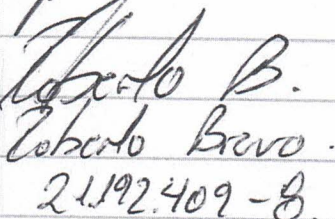 Roberto B.
Roberto Bravo.
21.192.409-8